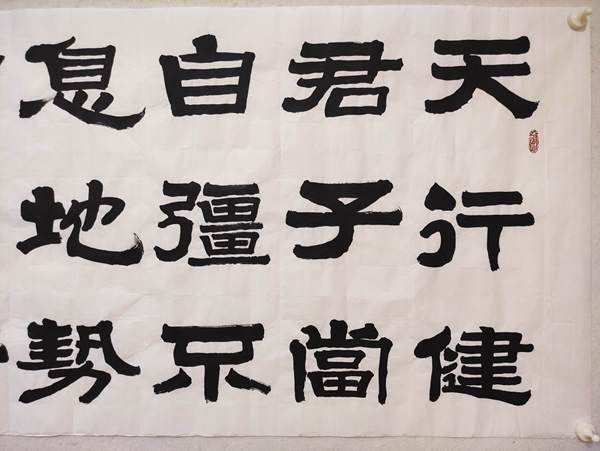 天行健
君子當
自彊不
息地勢